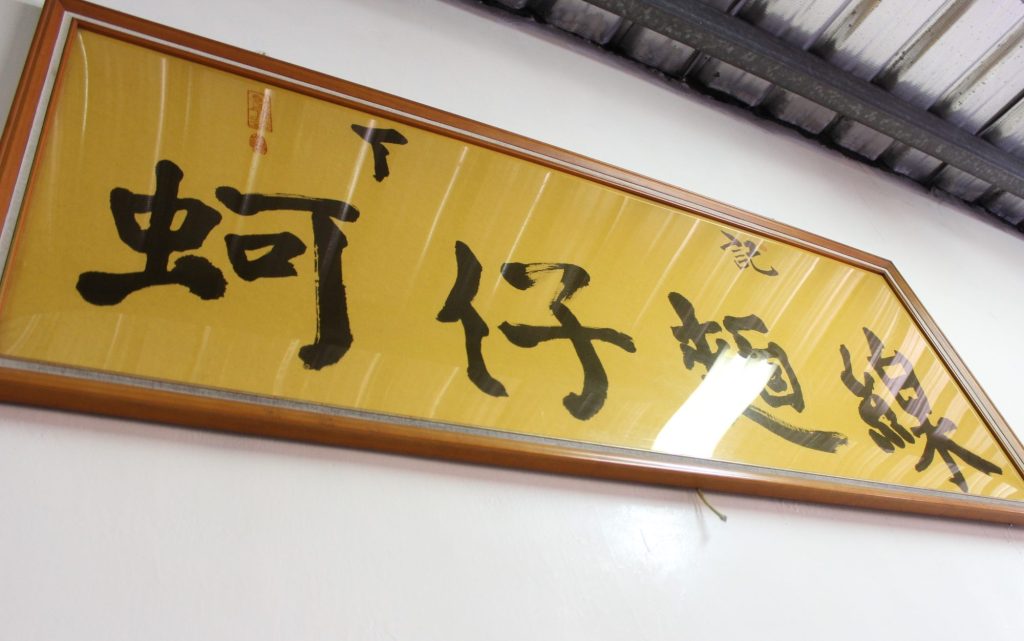 蚵仔麵線